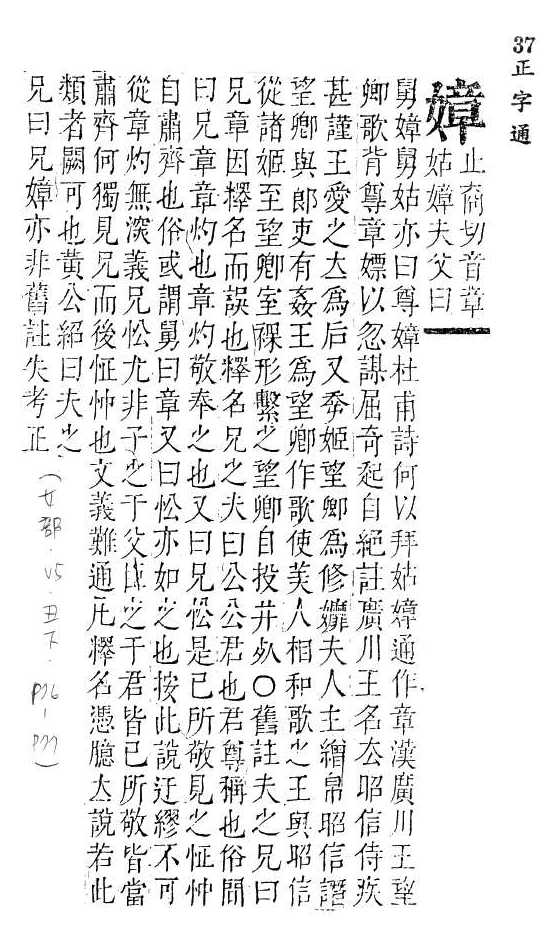 37正字通
嫜
止商切音章
姑嫜夫父曰
舅嫜舅姑亦曰尊嫜杜甫詩何以拜姑嫜通作章漢廣川王望
卿歌背尊章嫖以忽謀屈奇起自絕註廣川王名去昭信侍疾
甚謹王愛之立爲后又幸姬望卿爲修靡夫人主繒帛昭信譖
望卿與郎吏有姦王爲望卿作歌使美人相和歌之王與昭信
從諸姬至望卿室裸形擊之望卿自投井死○舊註夫之兄曰
兄章因釋名而誤也釋名兄之夫曰公公君也君尊稱也俗間
曰兄章章灼也章灼敬奉之也又曰兄忪是已所敬見之怔忡
自肅齊也俗或謂舅曰章又曰忪亦如之也按此說迂繆不可
從章灼無深義兄忪尤非子之于父臣之于君皆已所敬皆當
肅齊何獨見兄而後怔忡也文義難通凡釋名憑臆立說若此
類者闕可也黃公紹曰夫之
兄曰兄嫜亦非舊註失考正
(女部．V5．丑下．P76-P77)